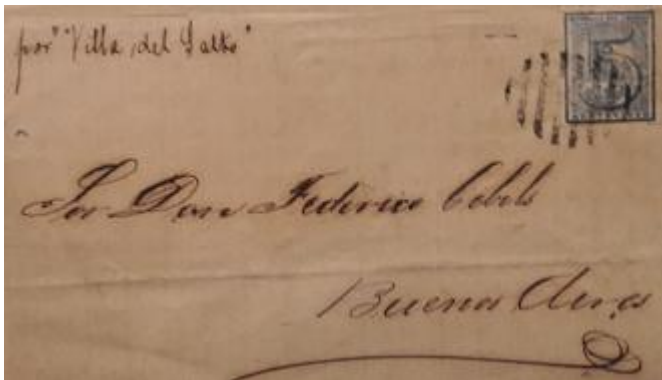 por "Villa del Salto"
5
Sor Don Federico
Buenos Aires